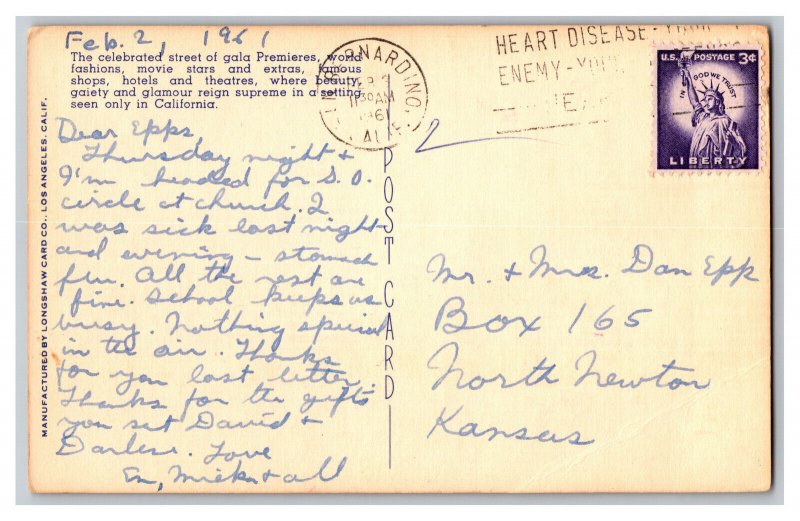 Feb. 2, 1961
The celebrated street of gala Premieres, world
fashions, movie stars and extras, famous
shops, hotels and theatres, where beauty,
gaiety and glamour reign supreme in a setting
seen only in California.
MANUFACTURED BY LONGSHAW CARD CO., LOS ANGELES, CALIF.
Dear Epps,
Thursday night &
I'm headed for S.O.
circle at church. I
was sick last night
and evening – stomach
flu. All the rest are
fine. School keeps us
busy. Nothing special
in the air. Thanks
for you last letter.
Thanks for the gifts
you set David &
Darlene. Love
Em, & all
POST CARD
BERNARDINO,
2
1130AM
1961
HEART DISEASE -
ENEMY -
U.S. POSTAGE 3¢
IN GOD WE TRUST
LIBERTY
Mr. & Mrs. Dan Epp
Box 165
North Newton
Kansas